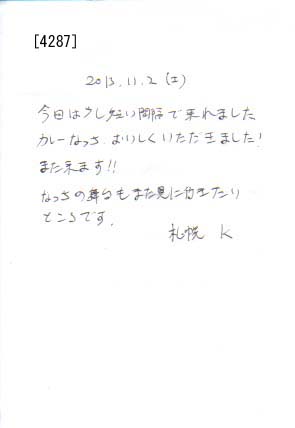 [4287]
2013.11.2 (土)
今回は少し短い間隔で来れました
カレーなっち おいしくいただきました!
また来ます!!
なっちの舞台もまた見に行きたい
ところです.
札幌 K